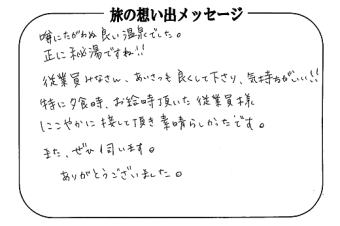 旅の想い出メッセージ
噂にたがわぬ良い温泉でした。
正に秘湯ですね!!
従業員みなさん、あいさつも良くして下さり、気持ちがいい!!
特に夕食時、お給時頂いた従業員様
にこやかに接して頂き素晴らしかったです。
また、ぜひ伺います。
ありがとうございました。